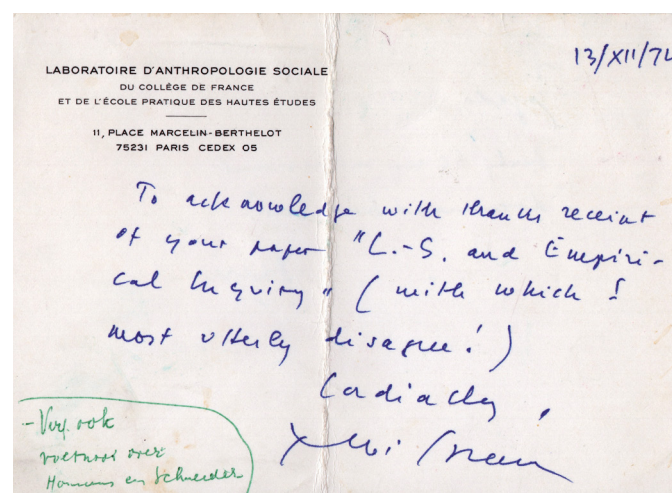 13/XII/74
LABORATOIRE D'ANTHROPOLOGIE SOCIALE
DU COLLÈGE DE FRANCE
ET DE L'ÉCOLE PRATIQUE DES HAUTES ÉTUDES
11, PLACE MARCELIN-BERTHELOT
75231 PARIS CEDEX 05
To acknowledge with thanks receipt
of your paper "L.-S. and Empiri-
cal Inquiry" (with which I
most utterly disagree!)
Cordially,
- Verg. ook
voetnoot over
Homans en Schneider